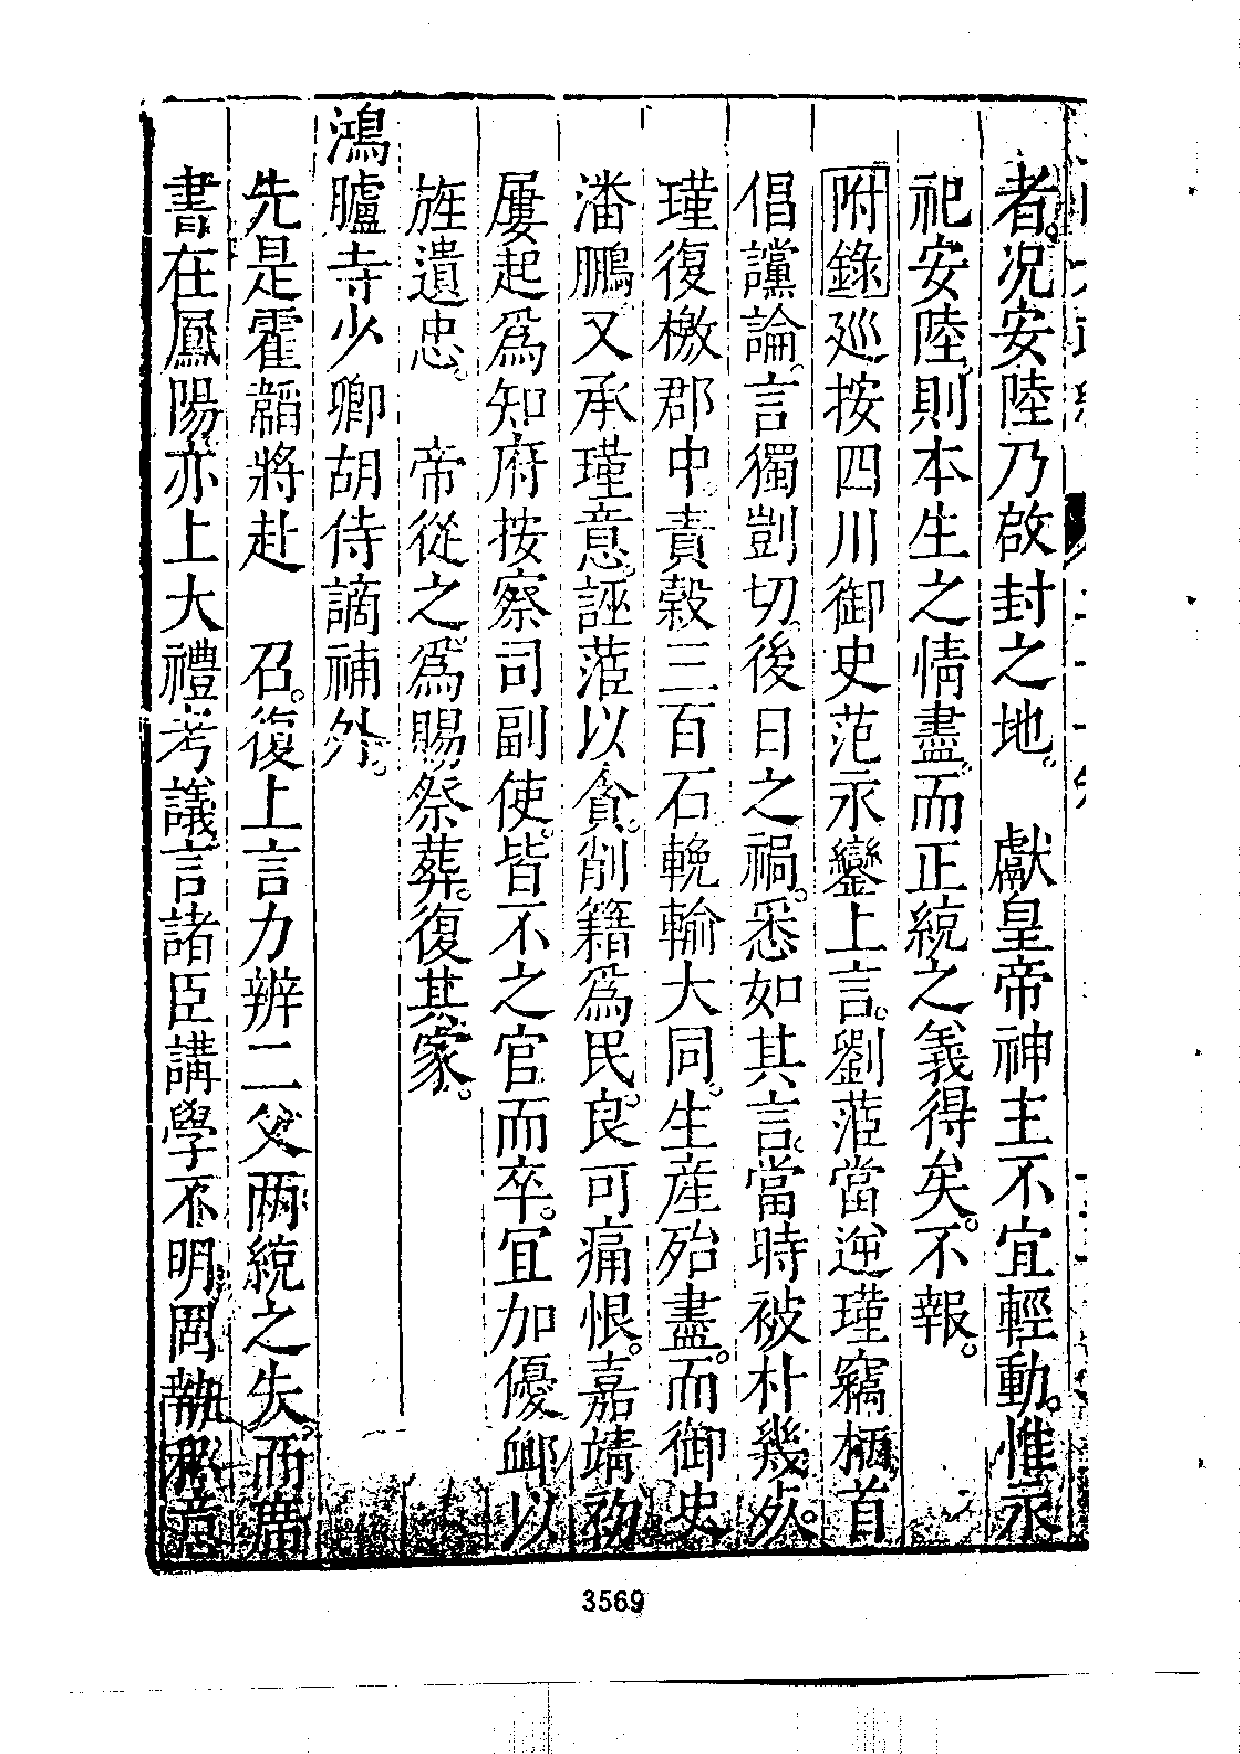 者況安陸乃啟封之地。　獻皇帝神主不宜輕動。惟永
祀安陸。則本生之情盡。而正統之義得矣。不報。
附錄廵按四川御史范永鑾上言。劉蒞當逆瑾竊柄首
倡讜論。言獨剴切。後日之禍。悉如其言。當時被朴幾死。
瑾復檄郡中。責穀三百石輓輸大同。生產殆盡。而御史
潘鵬又承瑾意。誣蒞以貪。削籍為民。良可痛恨。嘉靖初
屢起為知府按察司副使。皆不之官而卒。宜加優䘏以
旌遺忠。　帝從之。為賜祭葬。復其家。
鴻臚寺少卿胡侍謫補外。
先是霍韜將赴　召。復上言力辨二父兩統之失。而席
書在鳳陽亦上大禮考議言諸臣講學不明罔執私意
3569